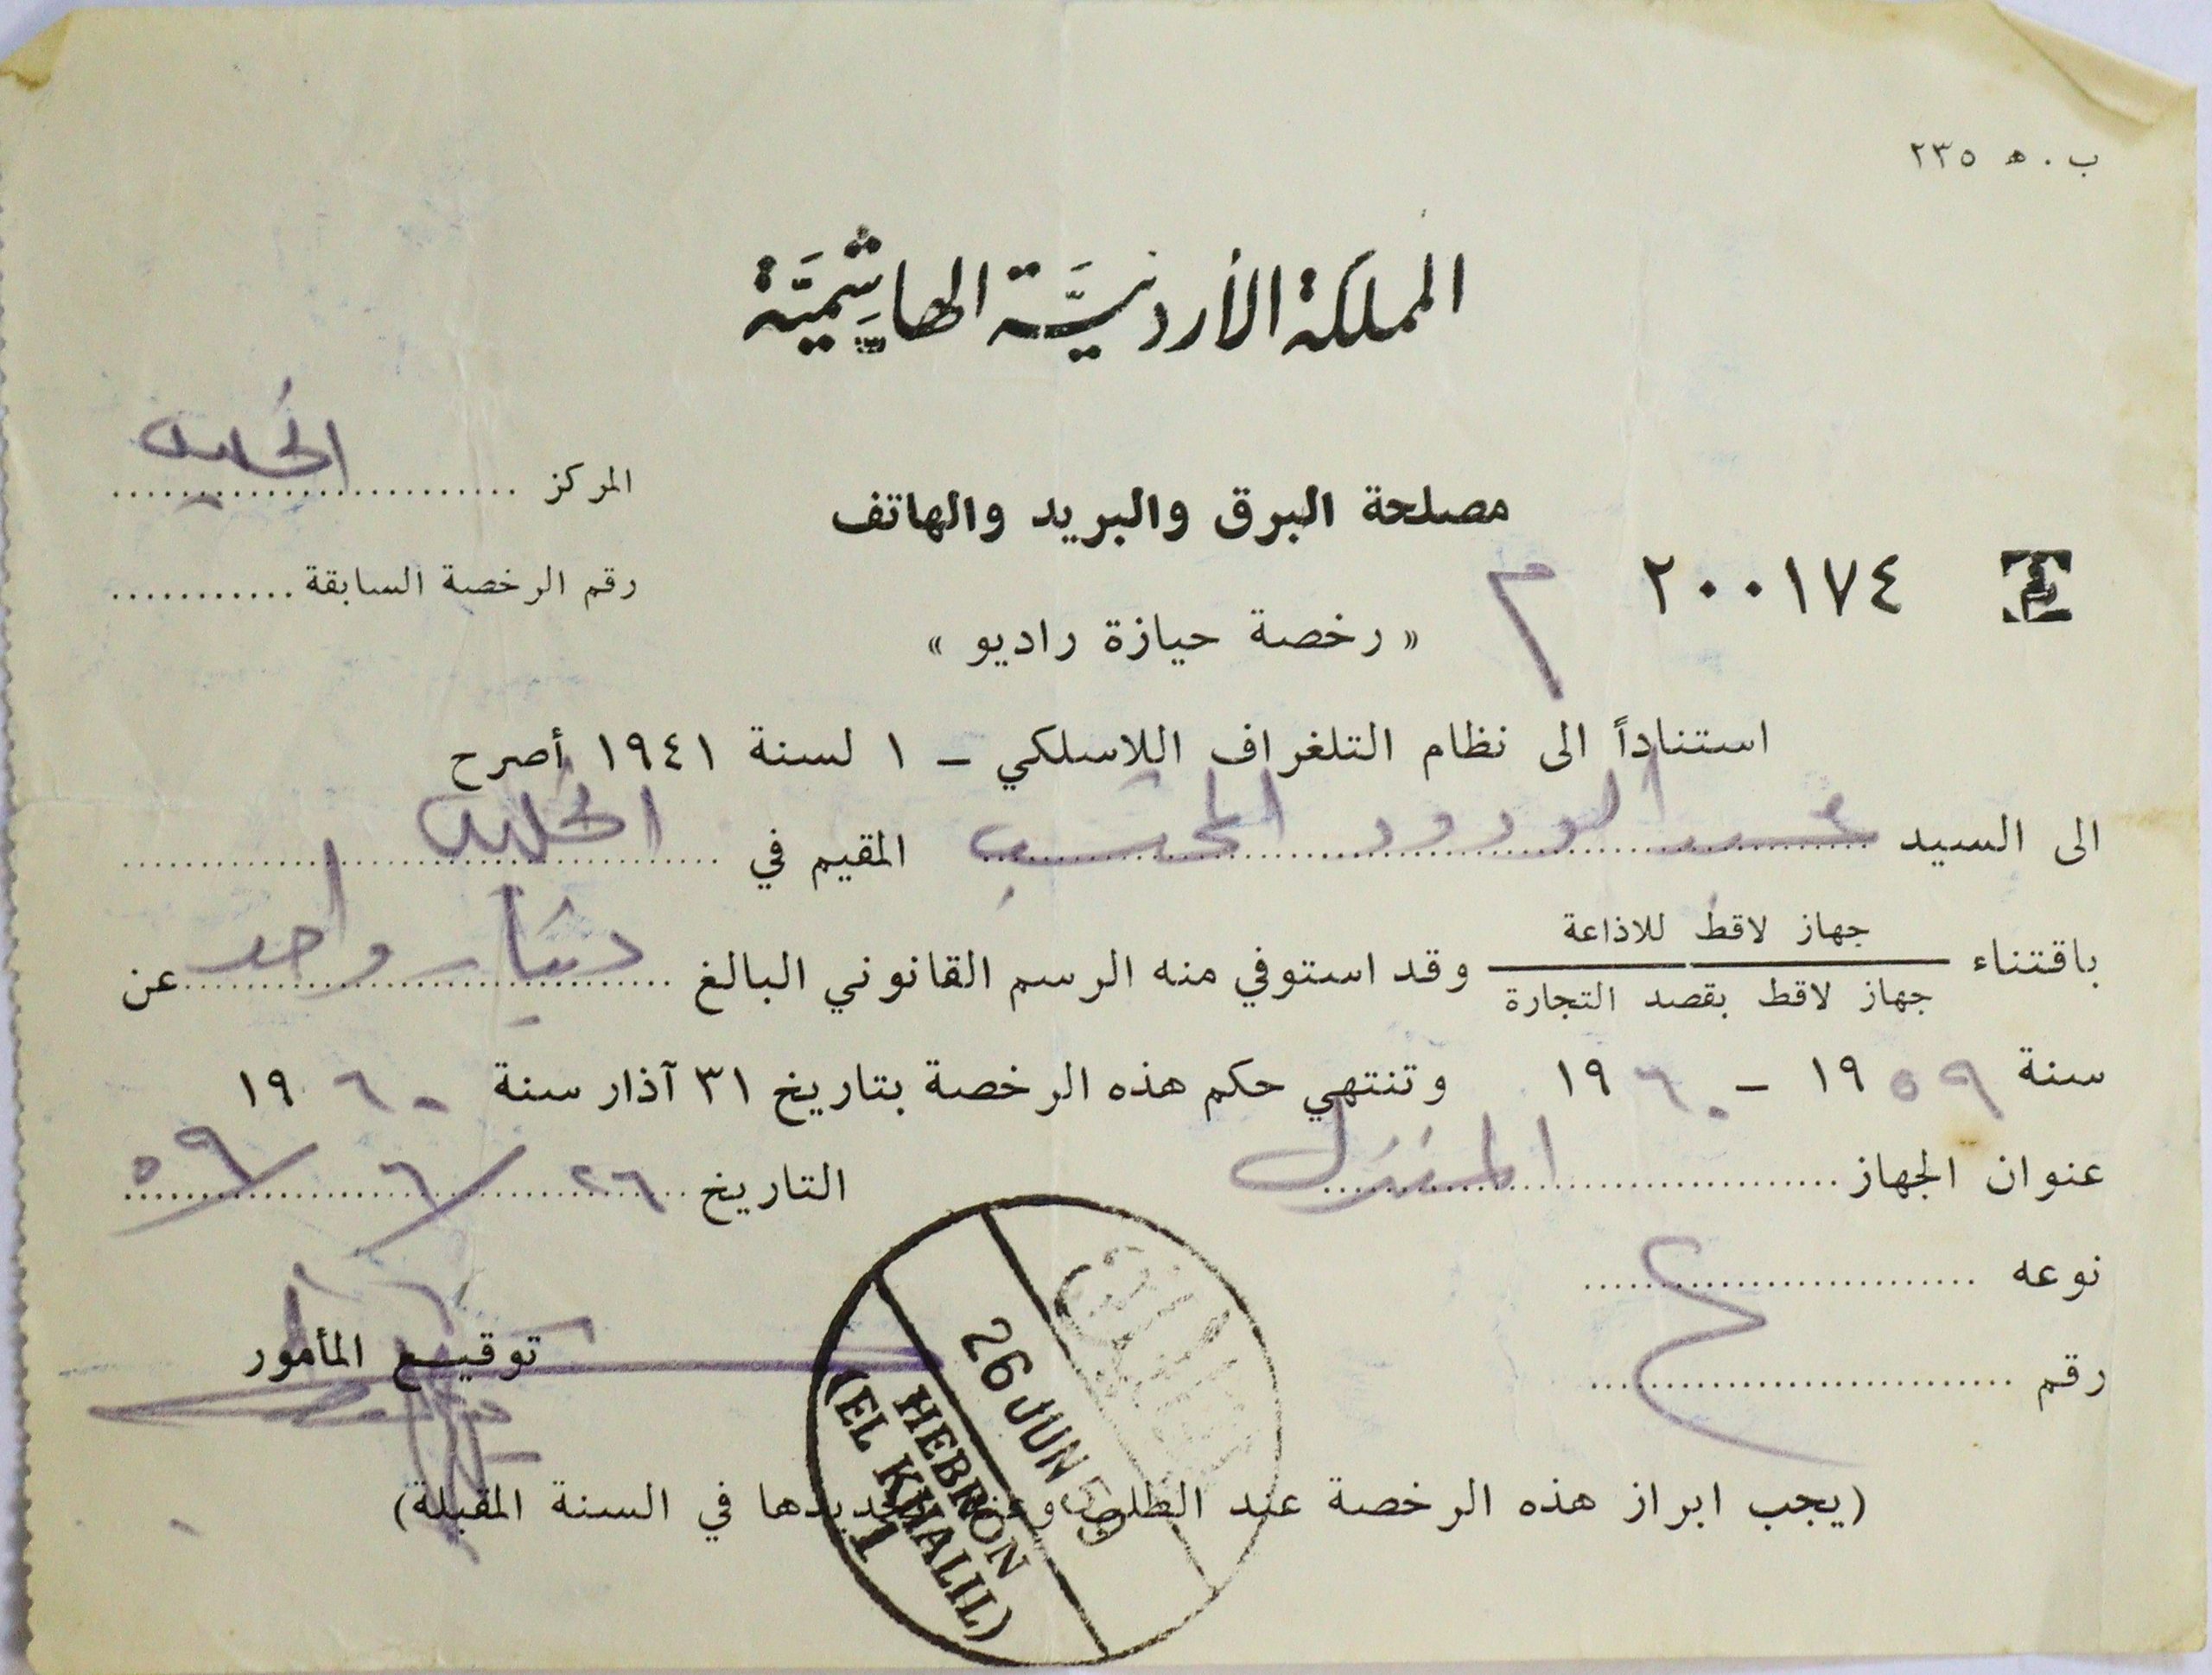 ب . ه ٢٣٥
المملكة الأردنيَّة الهاشِميَّة
المركز الخليل
مصلحة البرق والبريد والهاتف
رقم ٢٠٠١٧٤ م
رقم الرخصة السابقة
« رخصة حيازة راديو »
استناداً الى نظام التلغراف اللاسلكي – ١ لسنة ١٩٤١ أصرح
الى السيد عبد الودود المحتسب المقيم في الخليل
باقتناء جهاز لاقط للاذاعة
جهاز لاقط بقصد التجارة
وقد استوفي منه الرسم القانوني البالغ دينار واحد عن
سنة ١٩٥٩ – ١٩٦٠ وتنتهي حكم هذه الرخصة بتاريخ ٣١ آذار سنة ١٩٦٠
عنوان الجهاز المنزل التاريخ ٢٦/٦/٥٩
نوعه
رقم
توقيع المأمور
26 JUN 59
HEBRON
(EL KHALIL)
1
(يجب ابراز هذه الرخصة عند الطلب وعند تجديدها في السنة المقبلة)